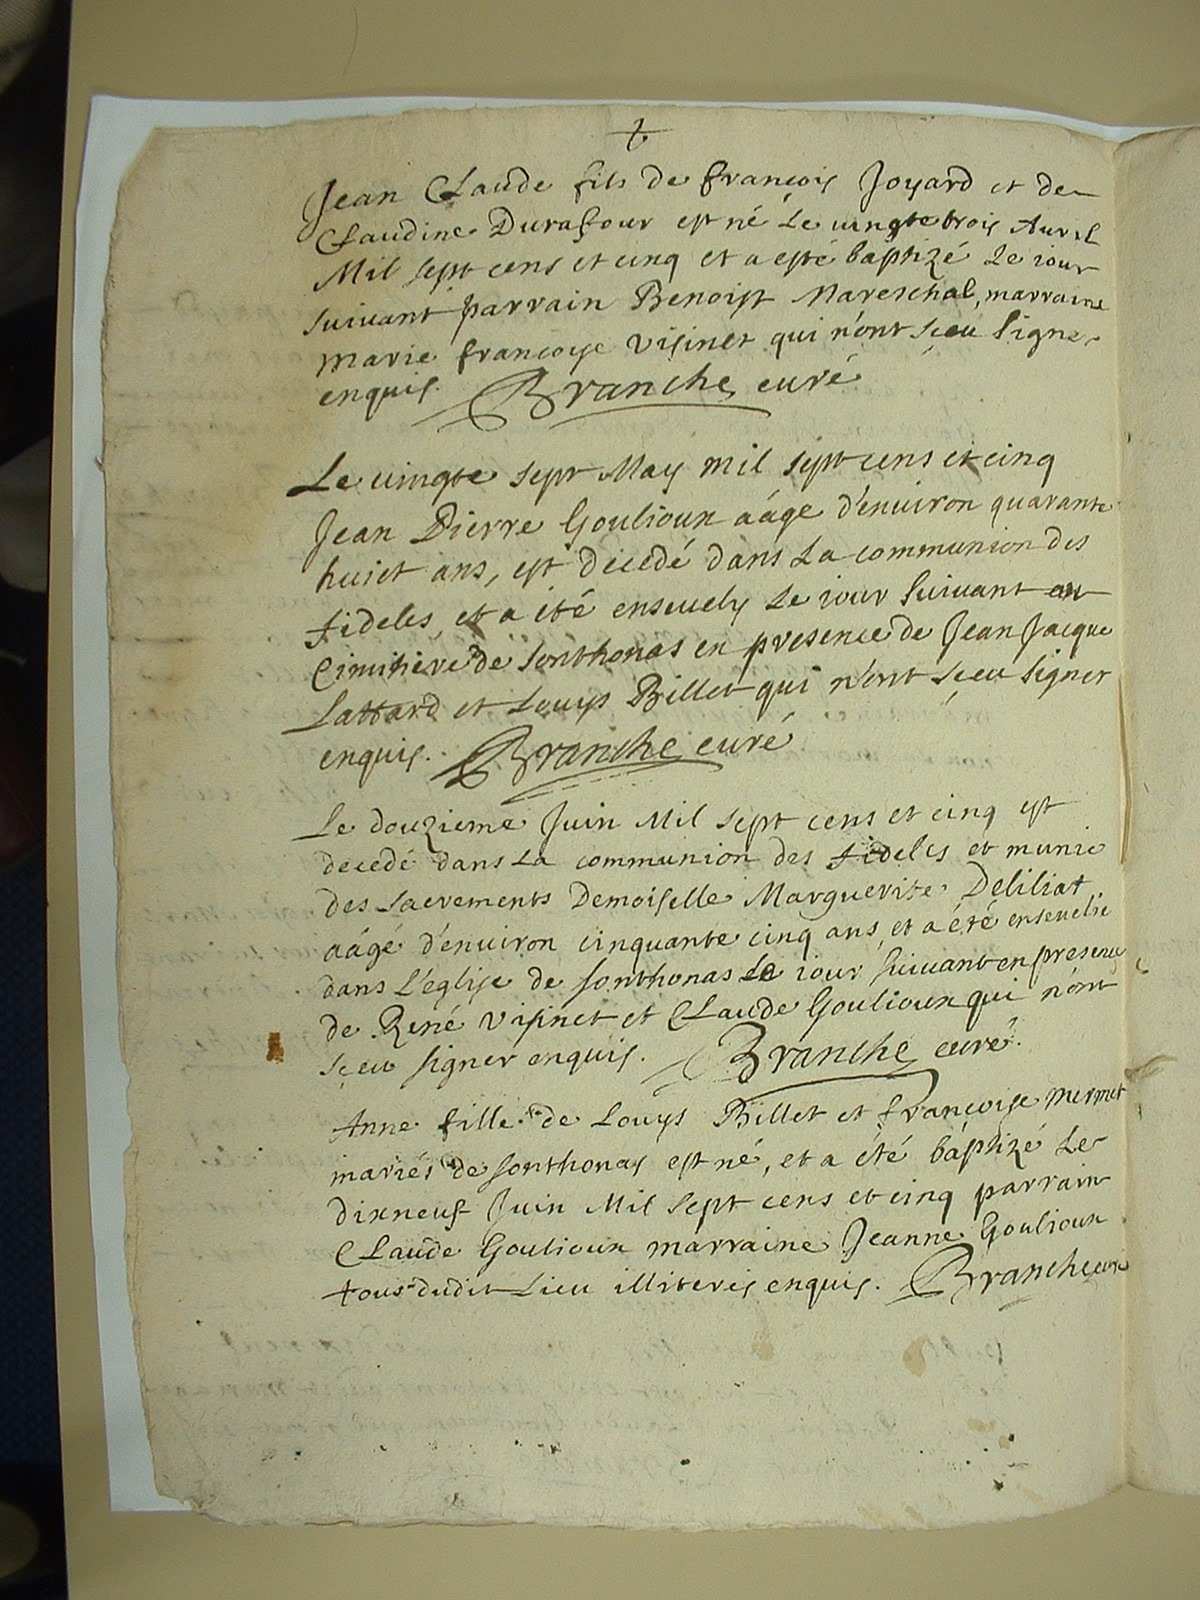 Jean Claude fils de françois Joyard et de
Claudine Durafour est né Le vingte trois Avril
Mil sept cens et cinq et a esté baptizé Le iour
suivant parrain Benoist Mareschal, marraine
Marie françoise Visinet qui n'ont sceu signer
enquis. Branche curé
Le vingte sept May mil sept cens et cinq
Jean Pierre Goulioux aágé d'environ quarante
huict ans, est decedé dans La communion des
fideles et a été ensevely Le iour suivant au
Cimitiere de Sonthonas en presence de Jean Jacque
Lattard et Louys Billet qui n'ont sçeu signer
enquis. Branche curé
Le douzieme Juin Mil sept cens et cinq est
decedé dans La communion des fideles et munie
des sacrements Demoiselle Marguerite Deliliat,
aágé d'environ cinquante cinq ans et a été ensevelie
dans L'église de Sonthonas Le iour suivant en presence
de René Visinet et Claude Goulioux qui n'ont
sçeu signer enquis. Branche curé.
Anne fille de Louys Billet et françoise Mermet
mariés de Sonthonas est né, et a été baptizé Le
dixneuf Juin Mil sept cens et cinq parrain
Claude Goulioux marraine Jeanne Goulioux
tous dudit Lieu illiteris enquis. Branche curé